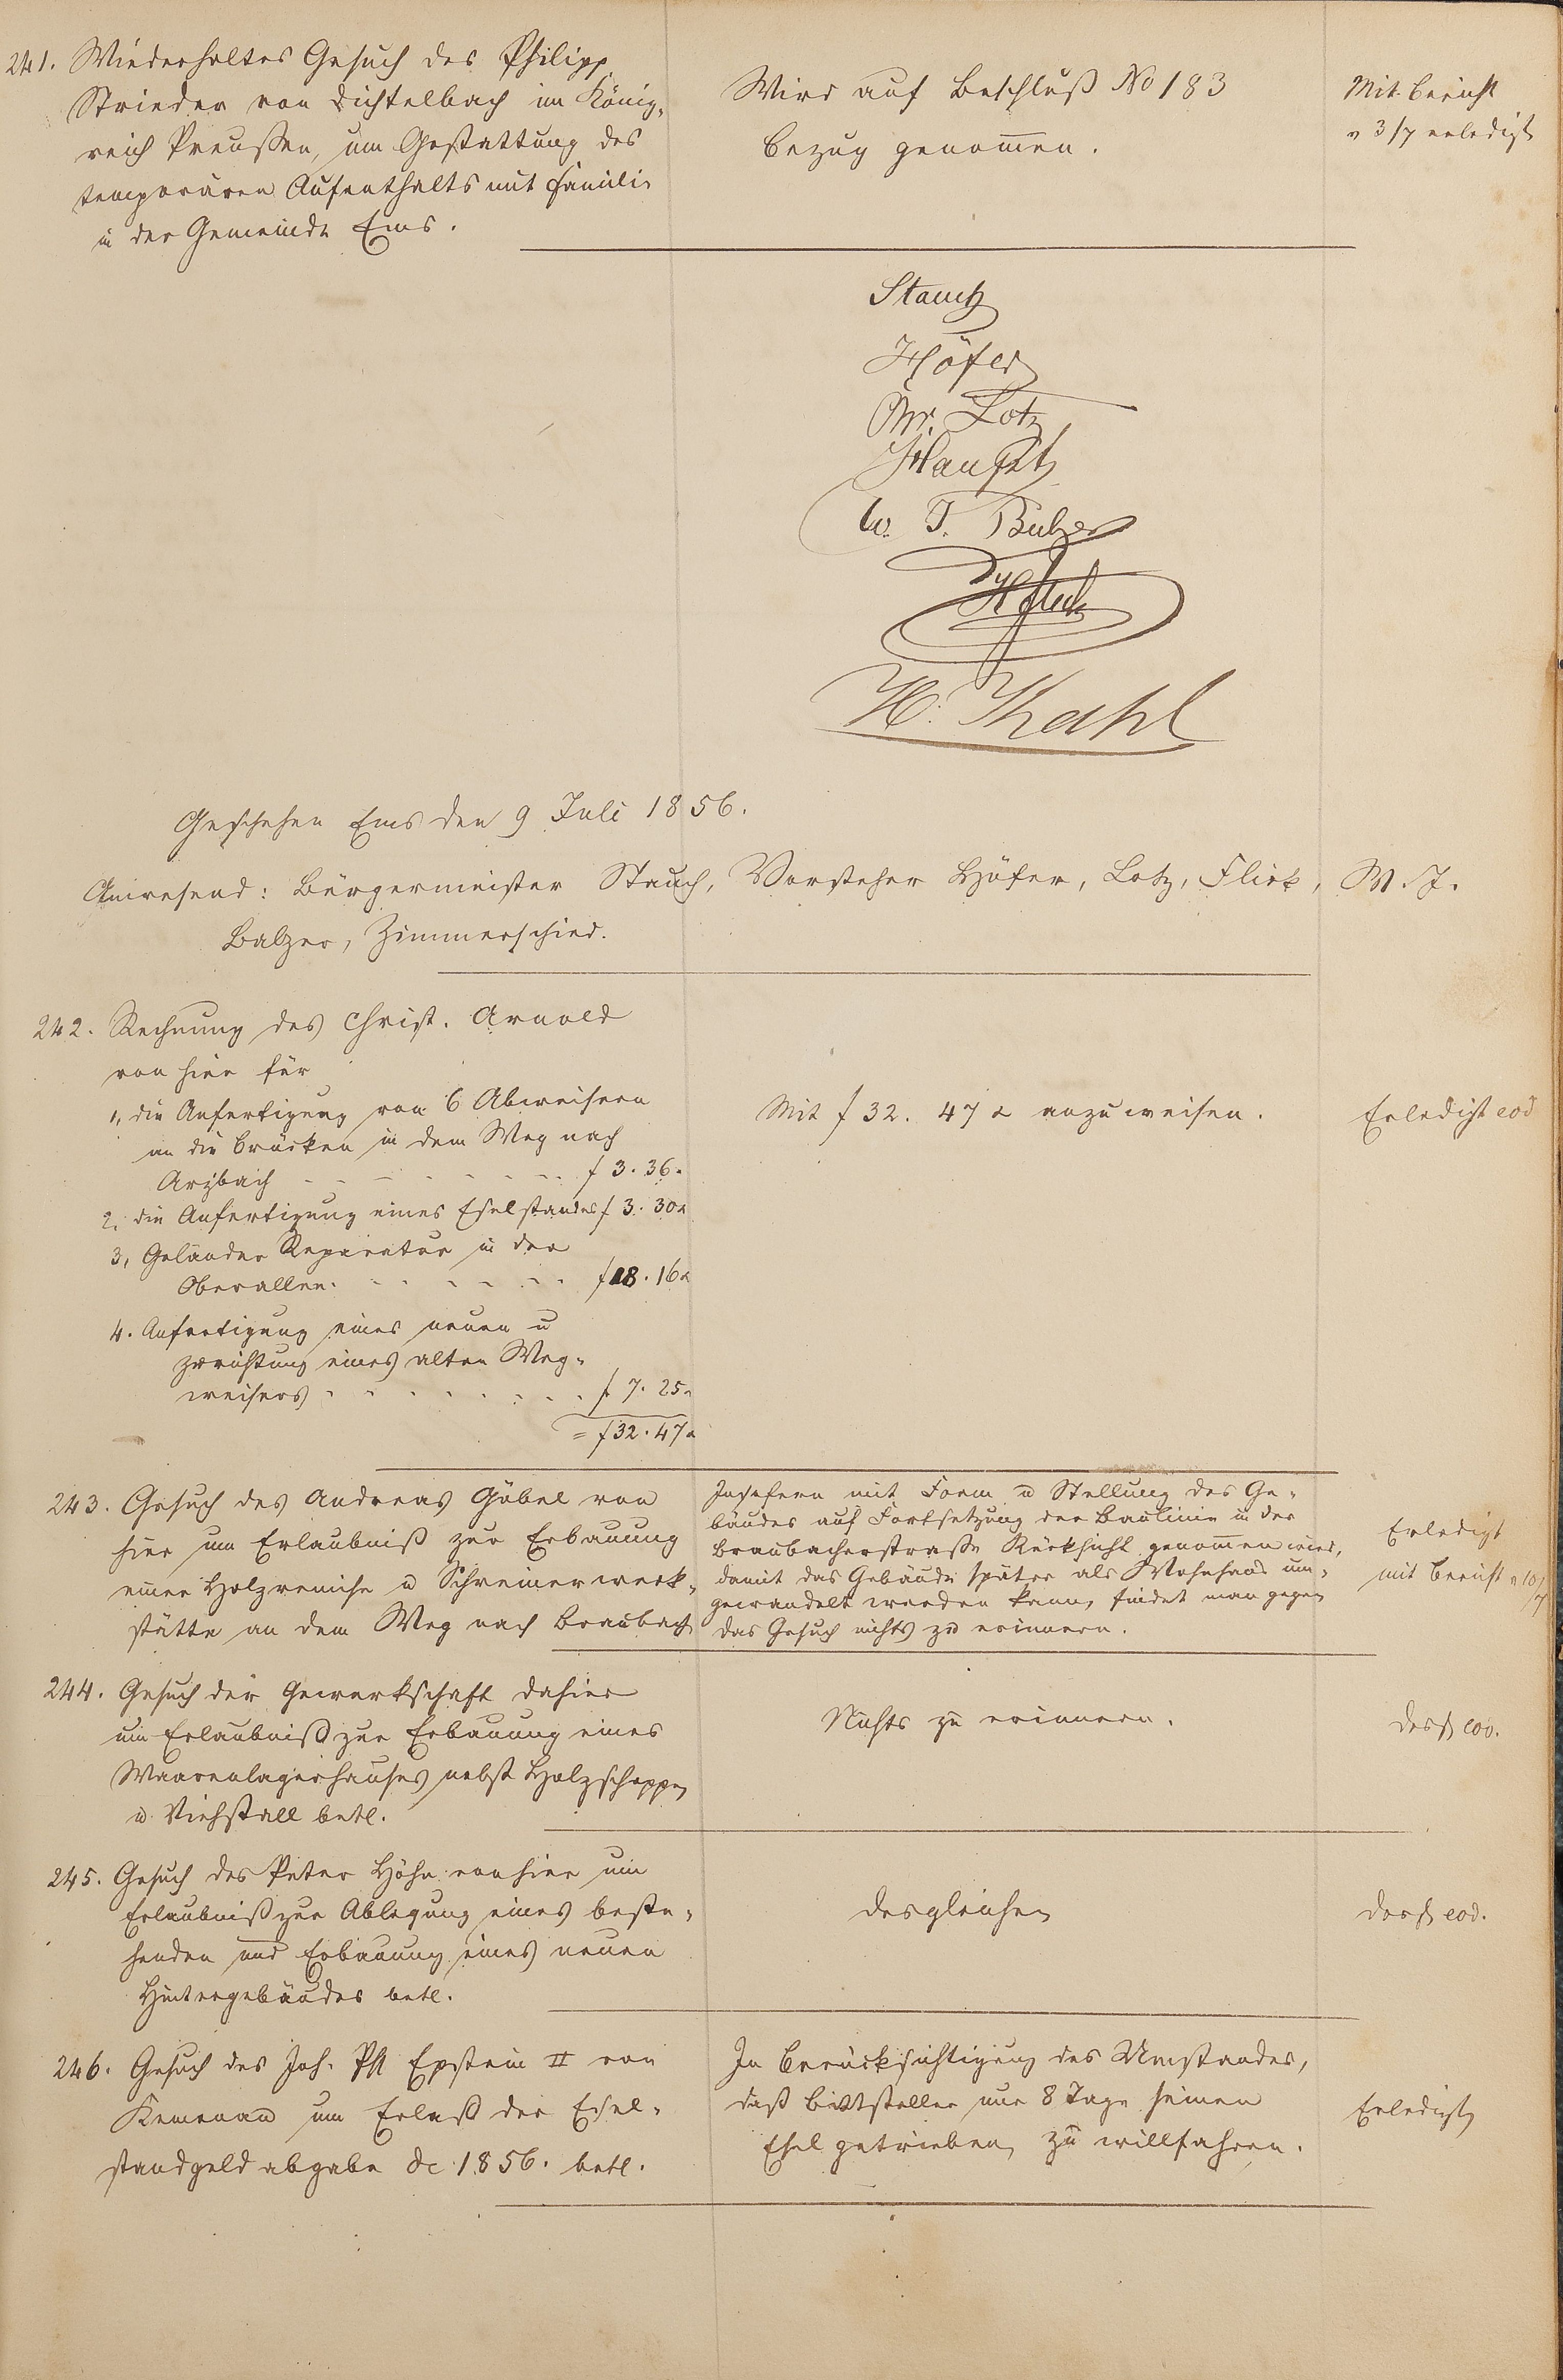 241. Wiederholtes Gesuch des Philipp
Strieder von Dichtelbach im König-
reich Preußen, um Gestattung des
temporären Aufenthalts mit Familie
in der Gemeinde Ems.
Wird auf Beschluß No 183
Bezug genommen.
Mit Bericht
v 3/7 erledigt
Stauch
Höfer
Chr. Lotz
Haupt
W. T. Balzer
H Flick
H. Kahl
Geschehen Ems den 9 Juli 1856.
Anwesend: Bürgermeister Stauch, Vorsteher Höfer, Lotz, Flick, W. T.
Balzer, Zimmerschied.
242. Rechnung des Christ. Arnold
von hier für
1, die Anfertigung von 6 Abweisern
an die Brücken in dem Weg nach
Arzbach - - - - - - - f 3. 36.
2, die Anfertigung eines Eselstandes f 3. 30x
3, Geländer Reparatur in der
Oberallee. - - - - - - f 18. 16x
4. Anfertigung eines neuen u
Zurichtung eines alten Weg-
weisers - - - - - - - - f 7. 25x
= f 32. 47x
Mit f 32. 47 x anzuweisen.
Erledigt eod
243. Gesuch des Andreas Göbel von
hier um Erlaubniß zur Erbauung
einer Holzremise u Schreinerwerk-
stätte an dem Weg nach Braubach
Insofern mit Form u Stellung des Ge-
bäudes auf Fortsetzung der Baulinie in der
Braubacherstraße Rücksicht genommen wird,
damit das Gebäude später als Wohnhaus um-
gewandelt werden kann, findet man gegen
das Gesuch nichts zu erinnern.
Erledigt
mit Bericht v 10/7
244. Gesuch der Gewerkschaft dahier
um Erlaubniß zur Erbauung eines
Waarenlagerhauses nebst Holzschoppen
u. Viehstall betl.
Nichts zu erinnern.
desgl eod.
245. Gesuch des Peter Höhn von hier um
Erlaubniß zur Ablegung eines beste-
henden und Erbauung eines neuen
Hintergebäudes betl.
desgleichen
desgl eod.
246. Gesuch des Joh. Ph Epstein II von
Kemenau um Erlaß der Esel-
standgeldabgabe de 1856. betl.
In Berücksichtigung des Umstandes,
daß Bittsteller nur 8 Tage seinen
Esel getrieben, zu willfahren.
Erledigt